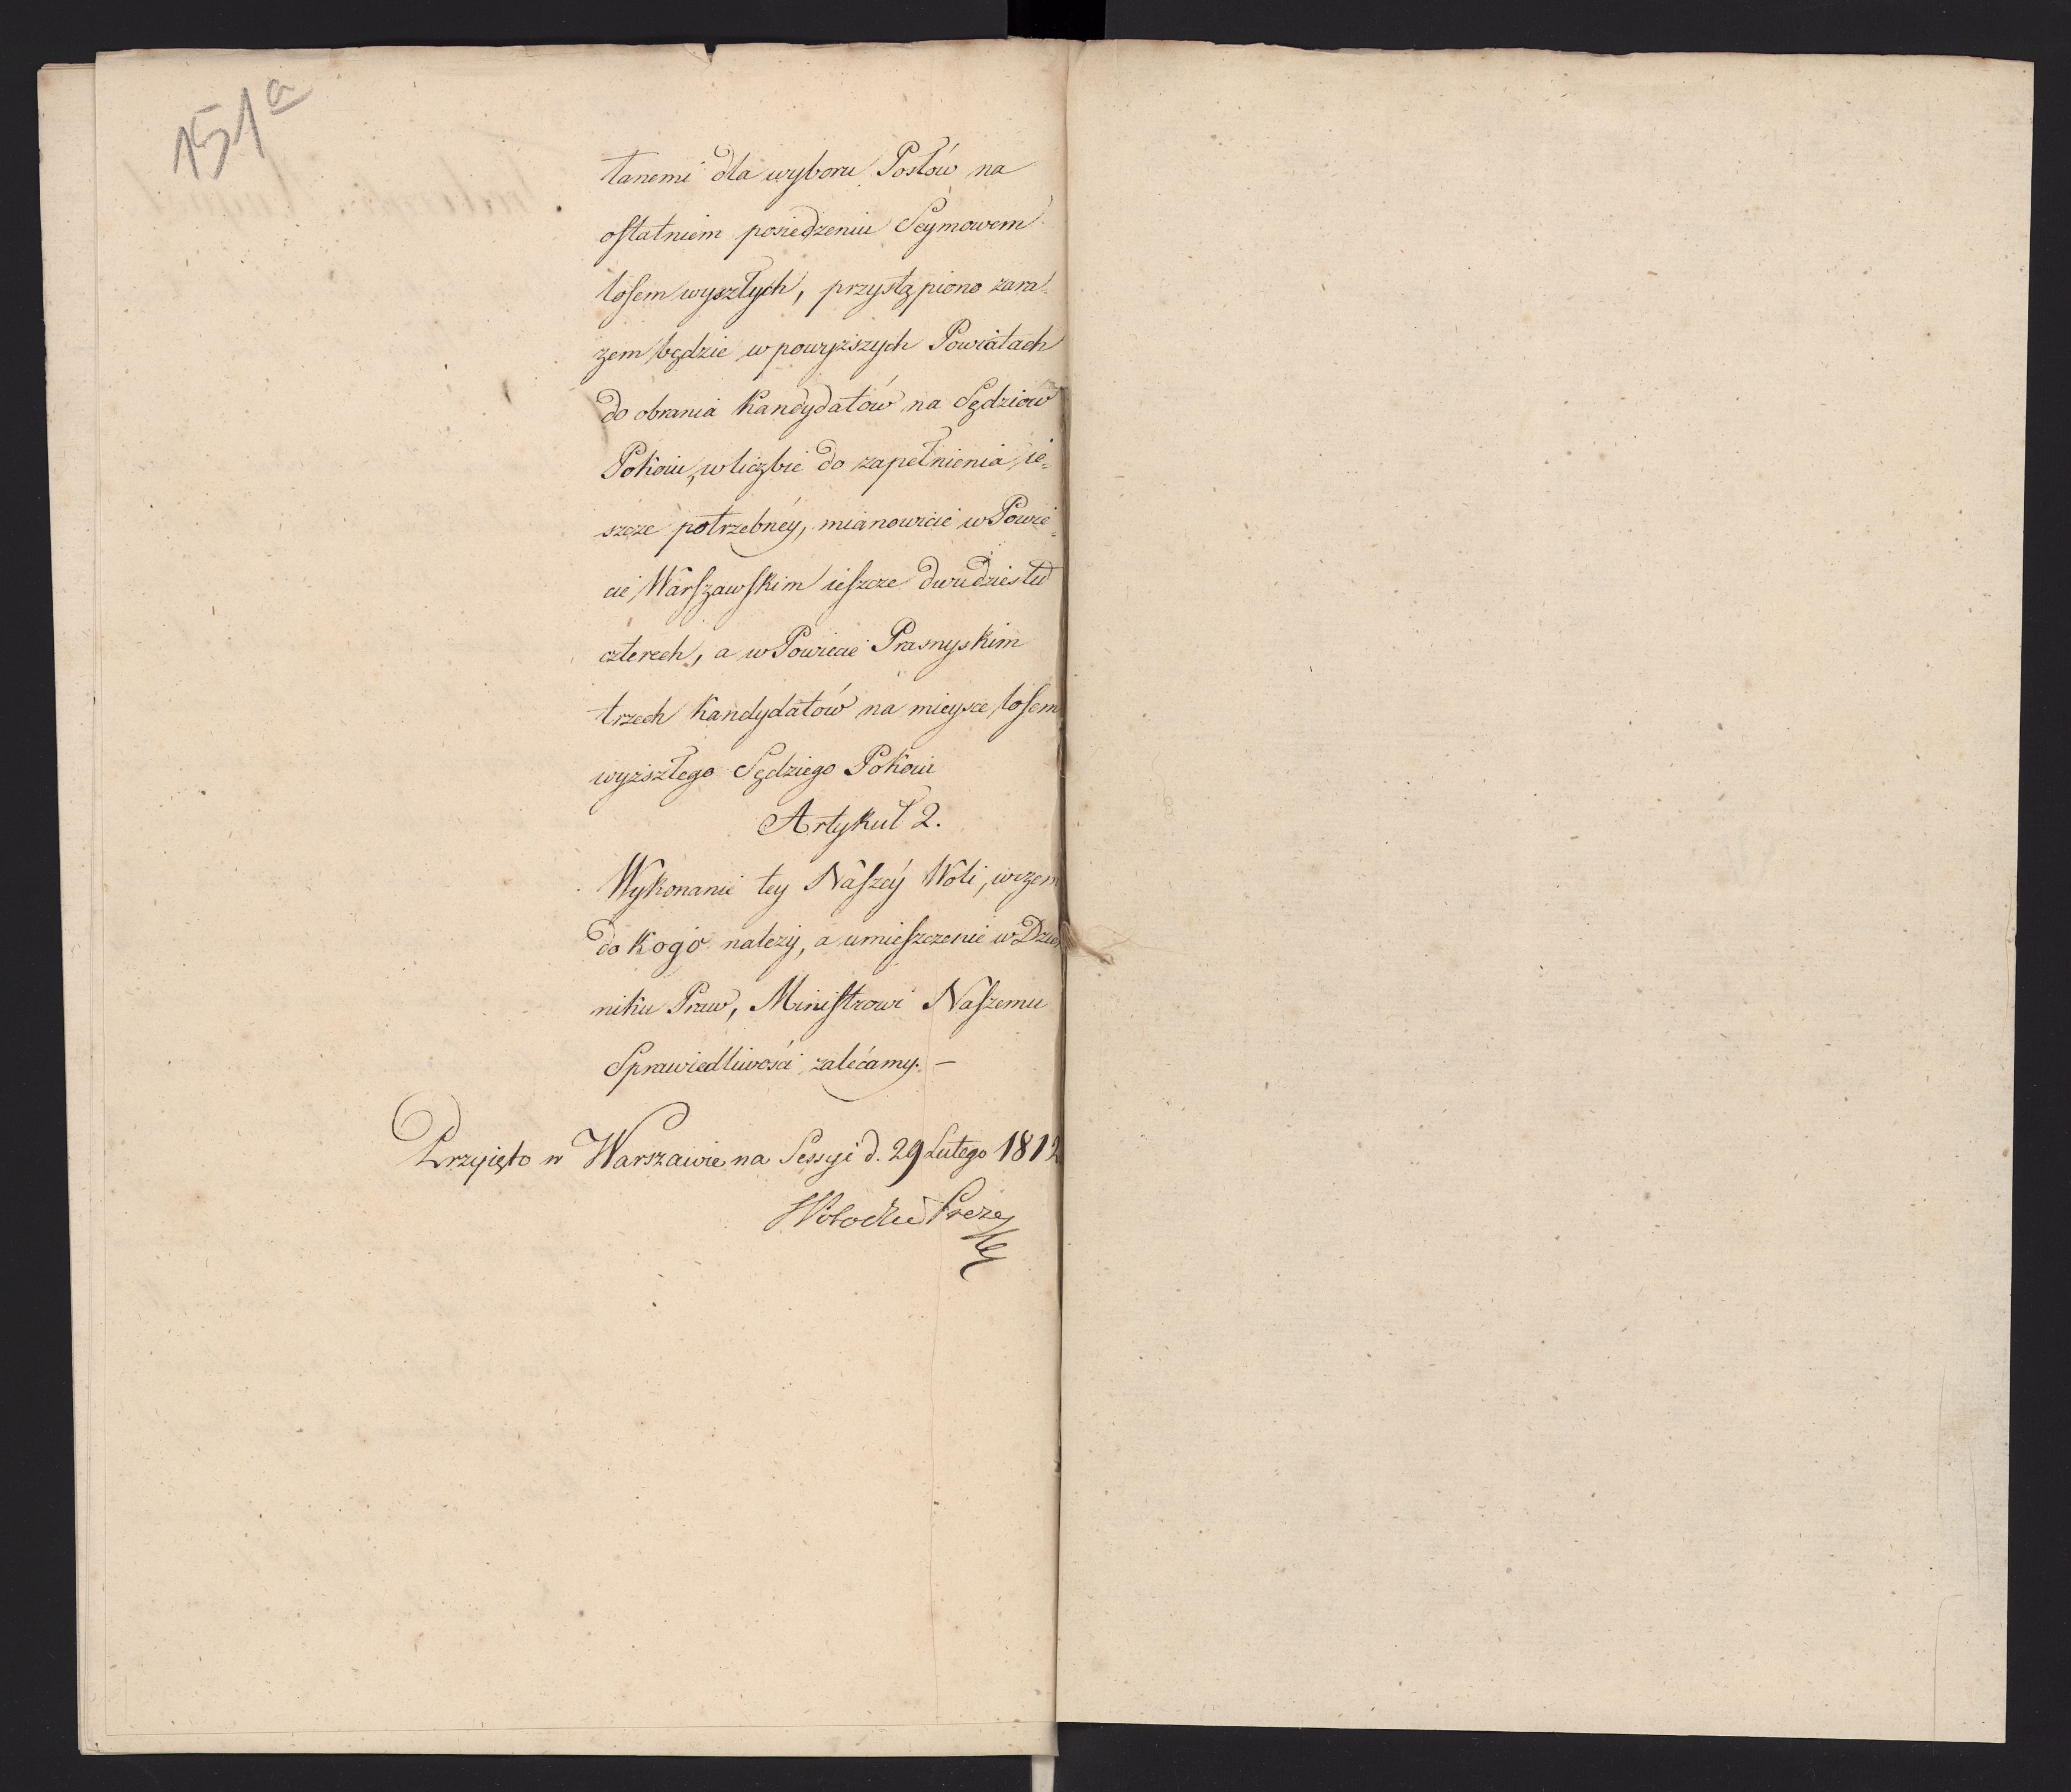 151a
łanemi dla wyboru Posłów na
ostatniem posiedzeniu Seymowem
losem wyszłych, przystąpiono zara-
zem będzie w powyższych Powiatach
do obrania Kandydatów na Sędziów
Pokoiu, w liczbie do zapełnienia ie-
szcze potrzebnéy, mianowicie w Powie-
cie Warszawskim ieszcze dwudziestu
czterech, a w Powiecie Prasnyskim
trzech Kandydatów na mieysce losem
wyższłego Sędziego Pokoiu
Artykuł 2.
Wykonanie tey Naszéy Woli, w czem
do kogo należy, a umieszczenie w Dzien
niku Praw, Ministrowi Naszemu
Sprawiedliwości zalecamy. –
Przyięto w Warszawie na Sessyi d. 29 Lutego 1812
Prezes